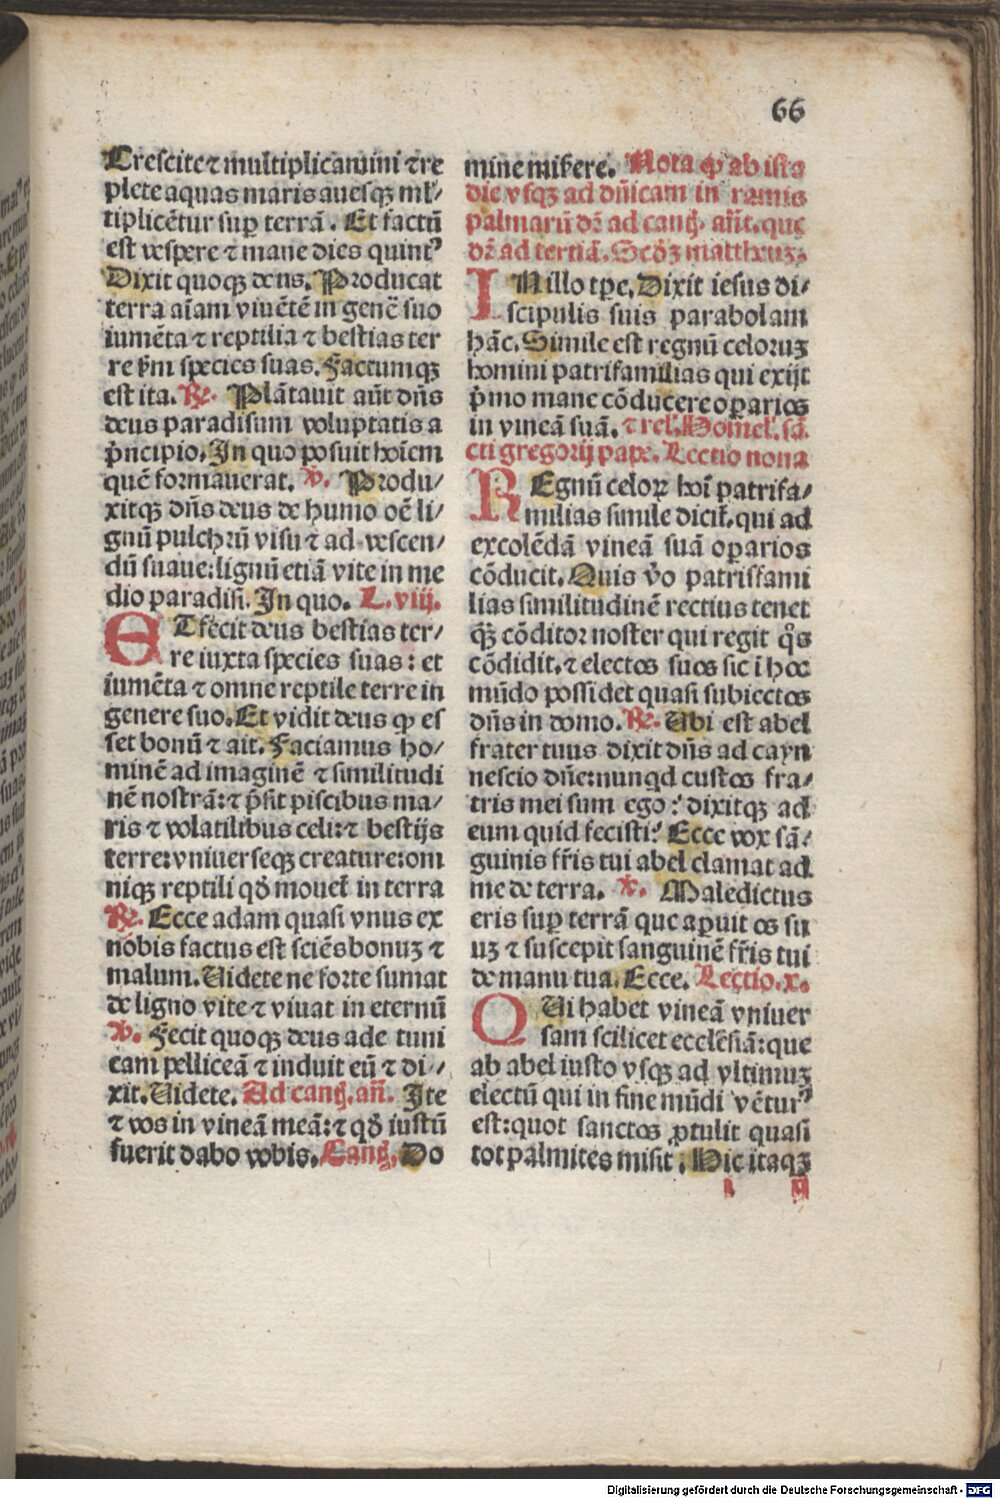 66
Crescite ⁊ multiplicamini ⁊ re
plete aquas maris auesqꝫ ml'⸗
tiplicētur suꝑ terrā. Et factū
est vespere ⁊ mane dies quintꝰ
Dixit quoqꝫ deus. Producat
terra aīam viuētē in genē suo
iumēta ⁊ reptilia ⁊ bestias ter
re ẜm species suas. Factumqꝫ
est ita. ℞. Plātauit aūt dn̄s
deus paradisum voluptatis a
p̄ncipio. In quo posuit hoīem
quē formauerat. ℣. Produ⸗
xitqꝫ dn̄s deus de humo oē li⸗
gnū pulchrū visu ⁊ ad vescen⸗
dū suaue: lignū etiā vite in me
dio paradisi. In quo. L. viij.
ET fecit deus bestias ter⸗
re iuxta species suas: et
iumēta ⁊ omne reptile terre in
genere suo. Et vidit deus ꝙ es
set bonū ⁊ ait. Faciamus ho⸗
minē ad imaginē ⁊ similitudi
nē nostrā: ⁊ p̄sit piscibus ma⸗
ris ⁊ volatilibus celi: ⁊ bestijs
terre: vniuerseqꝫ creature: om
niqꝫ reptili qḋ mouet̄ in terra
℞. Ecce adam quasi vnus ex
nobis factus est sciēs bonuꝫ ⁊
malum. Uidete ne forte sumat
de ligno vite ⁊ viuat in eternū
℣. Fecit quoqꝫ deus ade tuni
cam pelliceā ⁊ induit eū ⁊ di⸗
xit. Uidete. Ad canṫ. an̄. Ite
⁊ vos in vineā meā: ⁊ qḋ iustū
fuerit dabo vobis. Canṫ. Do
mine miẜere. Nota ꝙ ab ista
die vsqꝫ ad dn̄icam in ramis
palmarū dr̄ ad canṫ. an̄t. que
dr̄ ad tertiā. Scḋꝫ mattheuꝫ.
IN illo tꝑe. Dixit iesus di⸗
scipulis suis parabolam
hāc. Simile est regnū celoruꝫ
homini patrifamilias qui exijt
p̄mo mane cōducere oꝑarios
in vineā suā. ⁊ rel'. Homel'. sā
cti gregorij pape. Lectio nona
REgnū celoꝝ hoī patrifa⸗
milias simile dicit̄. qui ad
excolēdā vineā suā oꝑarios
cōducit. Quis v̊o patrisfami
lias similitudinē rectius tenet
qꝫ̄ cōditor noster qui regit qͦs
cōdidit. ⁊ electos suos sic ī hoc
mūdo possidet quasi subiectos
dn̄s in domo. ℞. Ubi est abel
frater tuus dixit dn̄s ad cayn
nescio dn̄e: nunqd custos fra⸗
tris mei sum ego? dixitqꝫ ad
eum quid fecisti? Ecce vox sā⸗
guinis fr̄is tui abel clamat ad
me de terra. ℣. Maledictus
eris suꝑ terrā que aꝑuit os su
uꝫ ⁊ suscepit sanguinē fr̄is tui
de manu tua. Ecce. Lectio. x.
QUi habet vineā vniuer
sam scilicet ecclesiā: que
ab abel iusto vsqꝫ ad vltimuꝫ
electū qui in fine mūdi vētur⁹
est: quot sanctos ꝓtulit quasi
tot palmites misit. Hic itaqꝫ
Digitalisierung gefördert durch die Deutsche Forschungsgemeinschaft - DFG